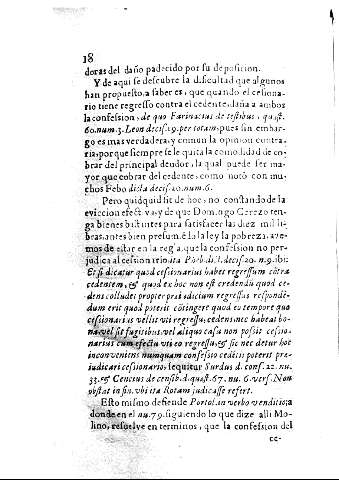 18
doras del daño padecido por su deposicion.
Y de aqui se descubre la dificultad que algunos
han propuesto, a saber es, que quando el cesiona-
rio tiene regresso contra el cedente, daña a ambos
la confession, de quo Farinacius de testibus, quæst.
60. num. 3. Leon decis. 19. per totam, pues sin embar-
go es mas verdadera, y comun la opinion contra-
ria, porque siempre se le quita la comodidad de co-
brar del principal deudor, la qual puede ser ma-
yor que cobrar del cedente, como notò con mu-
chos Febo dicta decis. 20. num. 6.
Pero quidquid sit de hoc, no constando de la
eviccion efectiva, y de que Domingo Cerezo ten-
ga bienes bastantes para satisfacer las diez mil li-
bras, antes bien presumẽ la ley la pobreza, ave-
mos de estar en la regla, que la confession no per-
judica al cessionario, ita Phęb. d. l. decis. 20. n. 9. ibi:
Et si dicatur quod cessionarius habet regressum cõtra
cedentem, & quod ex hoc non est credendū quod ce-
dens colludet propter prædictum regressus respondẽ-
dum erit quod poterit cõtingere quod eo tempore quo
cessionarius vellit uti regressu, cedens nec habeat bo-
na, vel sit fugitibus, vel aliquo casu non possit cessio-
narius cum efectu uti eo regressu, & sic nec detur hoc
inconvenitns numquam confessio cedētis poterit præ-
iudicari cessionario, sequitur Surdus d. cons. 22. nu.
33. & Cencius de censib. d. quæst. 67. nu. 6. vers. Non
obstat in fin. vbi Rotam judicasse refert.
Esto mismo defiende Portol. in verbo venditio; a
donde en el nu. 79. siguiendo lo que dize alli Mo-
lino, resuelve en terminos, que la confession del
ce-